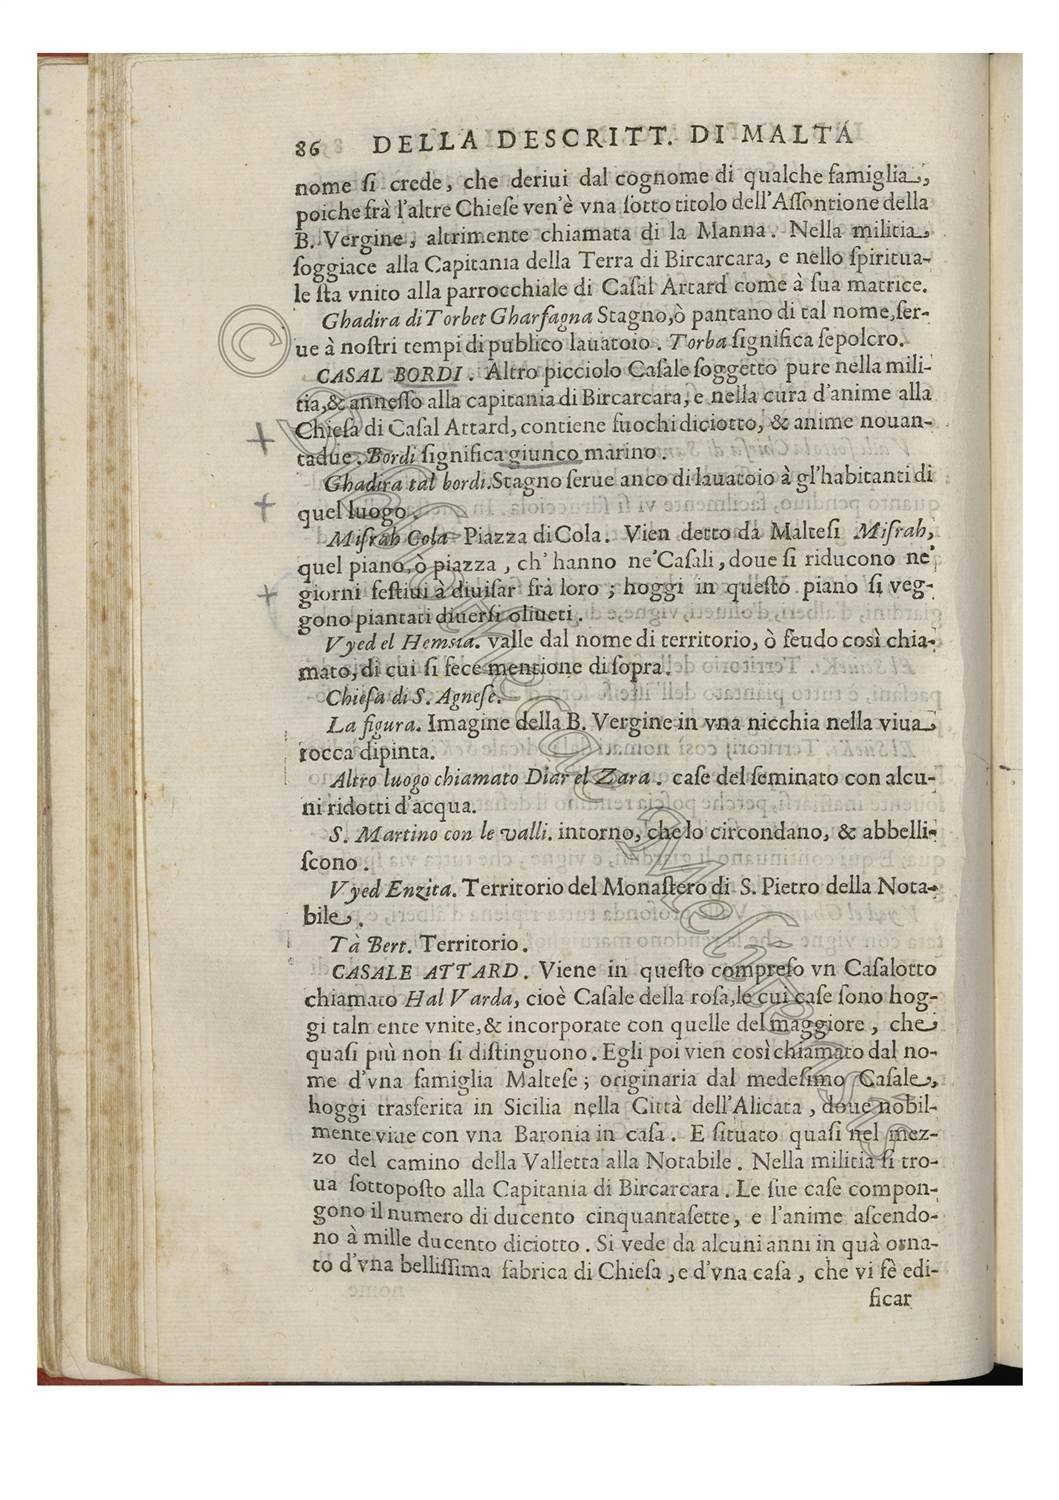 86 DELLA DESCRITT. DI MALTA
nome ſi crede, che deriui dal cognome di qualche famiglia,
poiche frà l'altre Chieſe ven'è vna ſotto titolo dell'Aſſontione della
B. Vergine, altrimente chiamata di la Manna. Nella militia
ſoggiace alla Capitania della Terra di Bircarcara, e nello ſpiritua-
le ſta vnito alla parrocchiale di Caſal Attard come à ſua matrice.
Ghadira di Torbet Gharfagna Stagno, ò pantano di tal nome, ſer-
ue à noſtri tempi di publico lauatoio. Torba ſignifica ſepolcro.
CASAL BORDI. Altro picciolo Caſale ſoggetto pure nella mili-
tia, & anneſſo alla capitania di Bircarcara, e nella cura d'anime alla
Chieſa di Caſal Attard, contiene fuochi diciotto, & anime nouan-
tadue. Bordi ſignifica giunco marino.
Ghadira tal bordi. Stagno ſerue anco di lauatoio à gl'habitanti di
quel luogo.
Miſrah Cola Piazza di Cola. Vien detto da Malteſi Miſrah,
quel piano, ò piazza, ch'hanno ne' Caſali, doue ſi riducono ne'
giorni feſtiui à diuiſar frà loro; hoggi in queſto piano ſi veg-
gono piantati diuerſi oliueti.
Vyed el Hemsia. valle dal nome di territorio, ò feudo così chia-
mato, di cui ſi fece mentione di ſopra.
Chieſa di S. Agneſe.
La figura. Imagine della B. Vergine in vna nicchia nella viua
rocca dipinta.
Altro luogo chiamato Diar el Zara. caſe del ſeminato con alcu-
ni ridotti d'acqua.
S. Martino con le valli. intorno, che lo circondano, & abbelli-
ſcono.
Vyed Enzita. Territorio del Monaſtero di S. Pietro della Nota-
bile.
Tà Bert. Territorio.
CASALE ATTARD. Viene in queſto compreſo vn Caſalotto
chiamato Hal Varda, cioè Caſale della roſa, le cui caſe ſono hog-
gi talmente vnite, & incorporate con quelle del maggiore, che
quaſi più non ſi diſtinguono. Egli poi vien così chiamato dal no-
me d'vna famiglia Malteſe; originaria dal medeſimo Caſale,
hoggi trasferita in Sicilia nella Città dell'Alicata, doue nobil-
mente viue con vna Baronia in caſa. E ſituato quaſi nel mez-
zo del camino della Valletta alla Notabile. Nella militia ſi tro-
ua ſottopoſto alla Capitania di Bircarcara. Le ſue caſe compon-
gono il numero di ducento cinquantaſette, e l'anime aſcendo-
no à mille ducento diciotto. Si vede da alcuni anni in quà orna-
to d'vna belliſſima fabrica di Chieſa, e d'vna caſa, che vi fè edi-
ficar